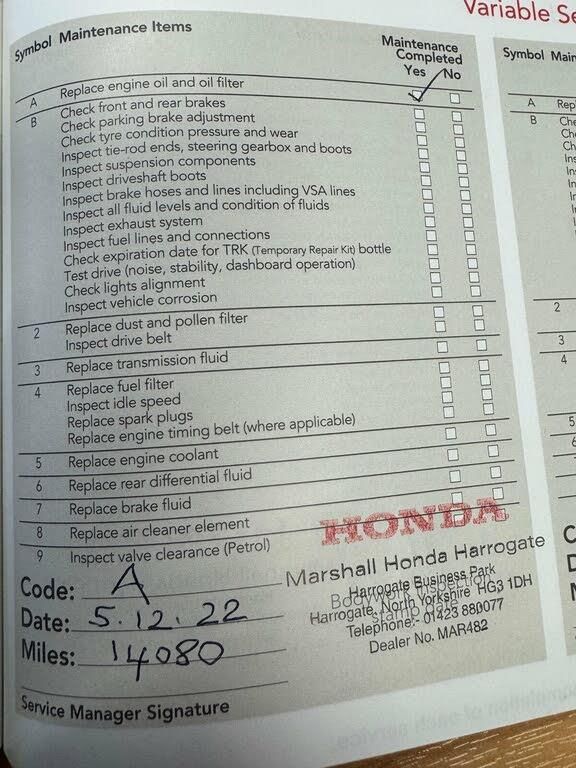 Variable Se
Symbol Maintenance Items
Maintenance
Completed
Yes No
A Replace engine oil and oil filter
B Check front and rear brakes
Check parking brake adjustment
Check tyre condition pressure and wear
Inspect tie-rod ends, steering gearbox and boots
Inspect suspension components
Inspect driveshaft boots
Inspect brake hoses and lines including VSA lines
Inspect all fluid levels and condition of fluids
Inspect exhaust system
Inspect fuel lines and connections
Check expiration date for TRK (Temporary Repair Kit) bottle
Test drive (noise, stability, dashboard operation)
Check lights alignment
Inspect vehicle corrosion
2 Replace dust and pollen filter
Inspect drive belt
3 Replace transmission fluid
4 Replace fuel filter
Inspect idle speed
Replace spark plugs
Replace engine timing belt (where applicable)
5 Replace engine coolant
6 Replace rear differential fluid
7 Replace brake fluid
8 Replace air cleaner element
9 Inspect valve clearance (Petrol)
Code: A
Date: 5.12.22
Miles: 14080
Service Manager Signature
HONDA
Marshall Honda Harrogate
Harrogate Business Park
Harrogate, North Yorkshire HG3 1DH
Telephone:- 01423 880077
Dealer No. MAR482
Bodywork Inspection
Symbol Main
A Rep
B Che
Che
Ch
Ins
Ins
2
3
4
5
6